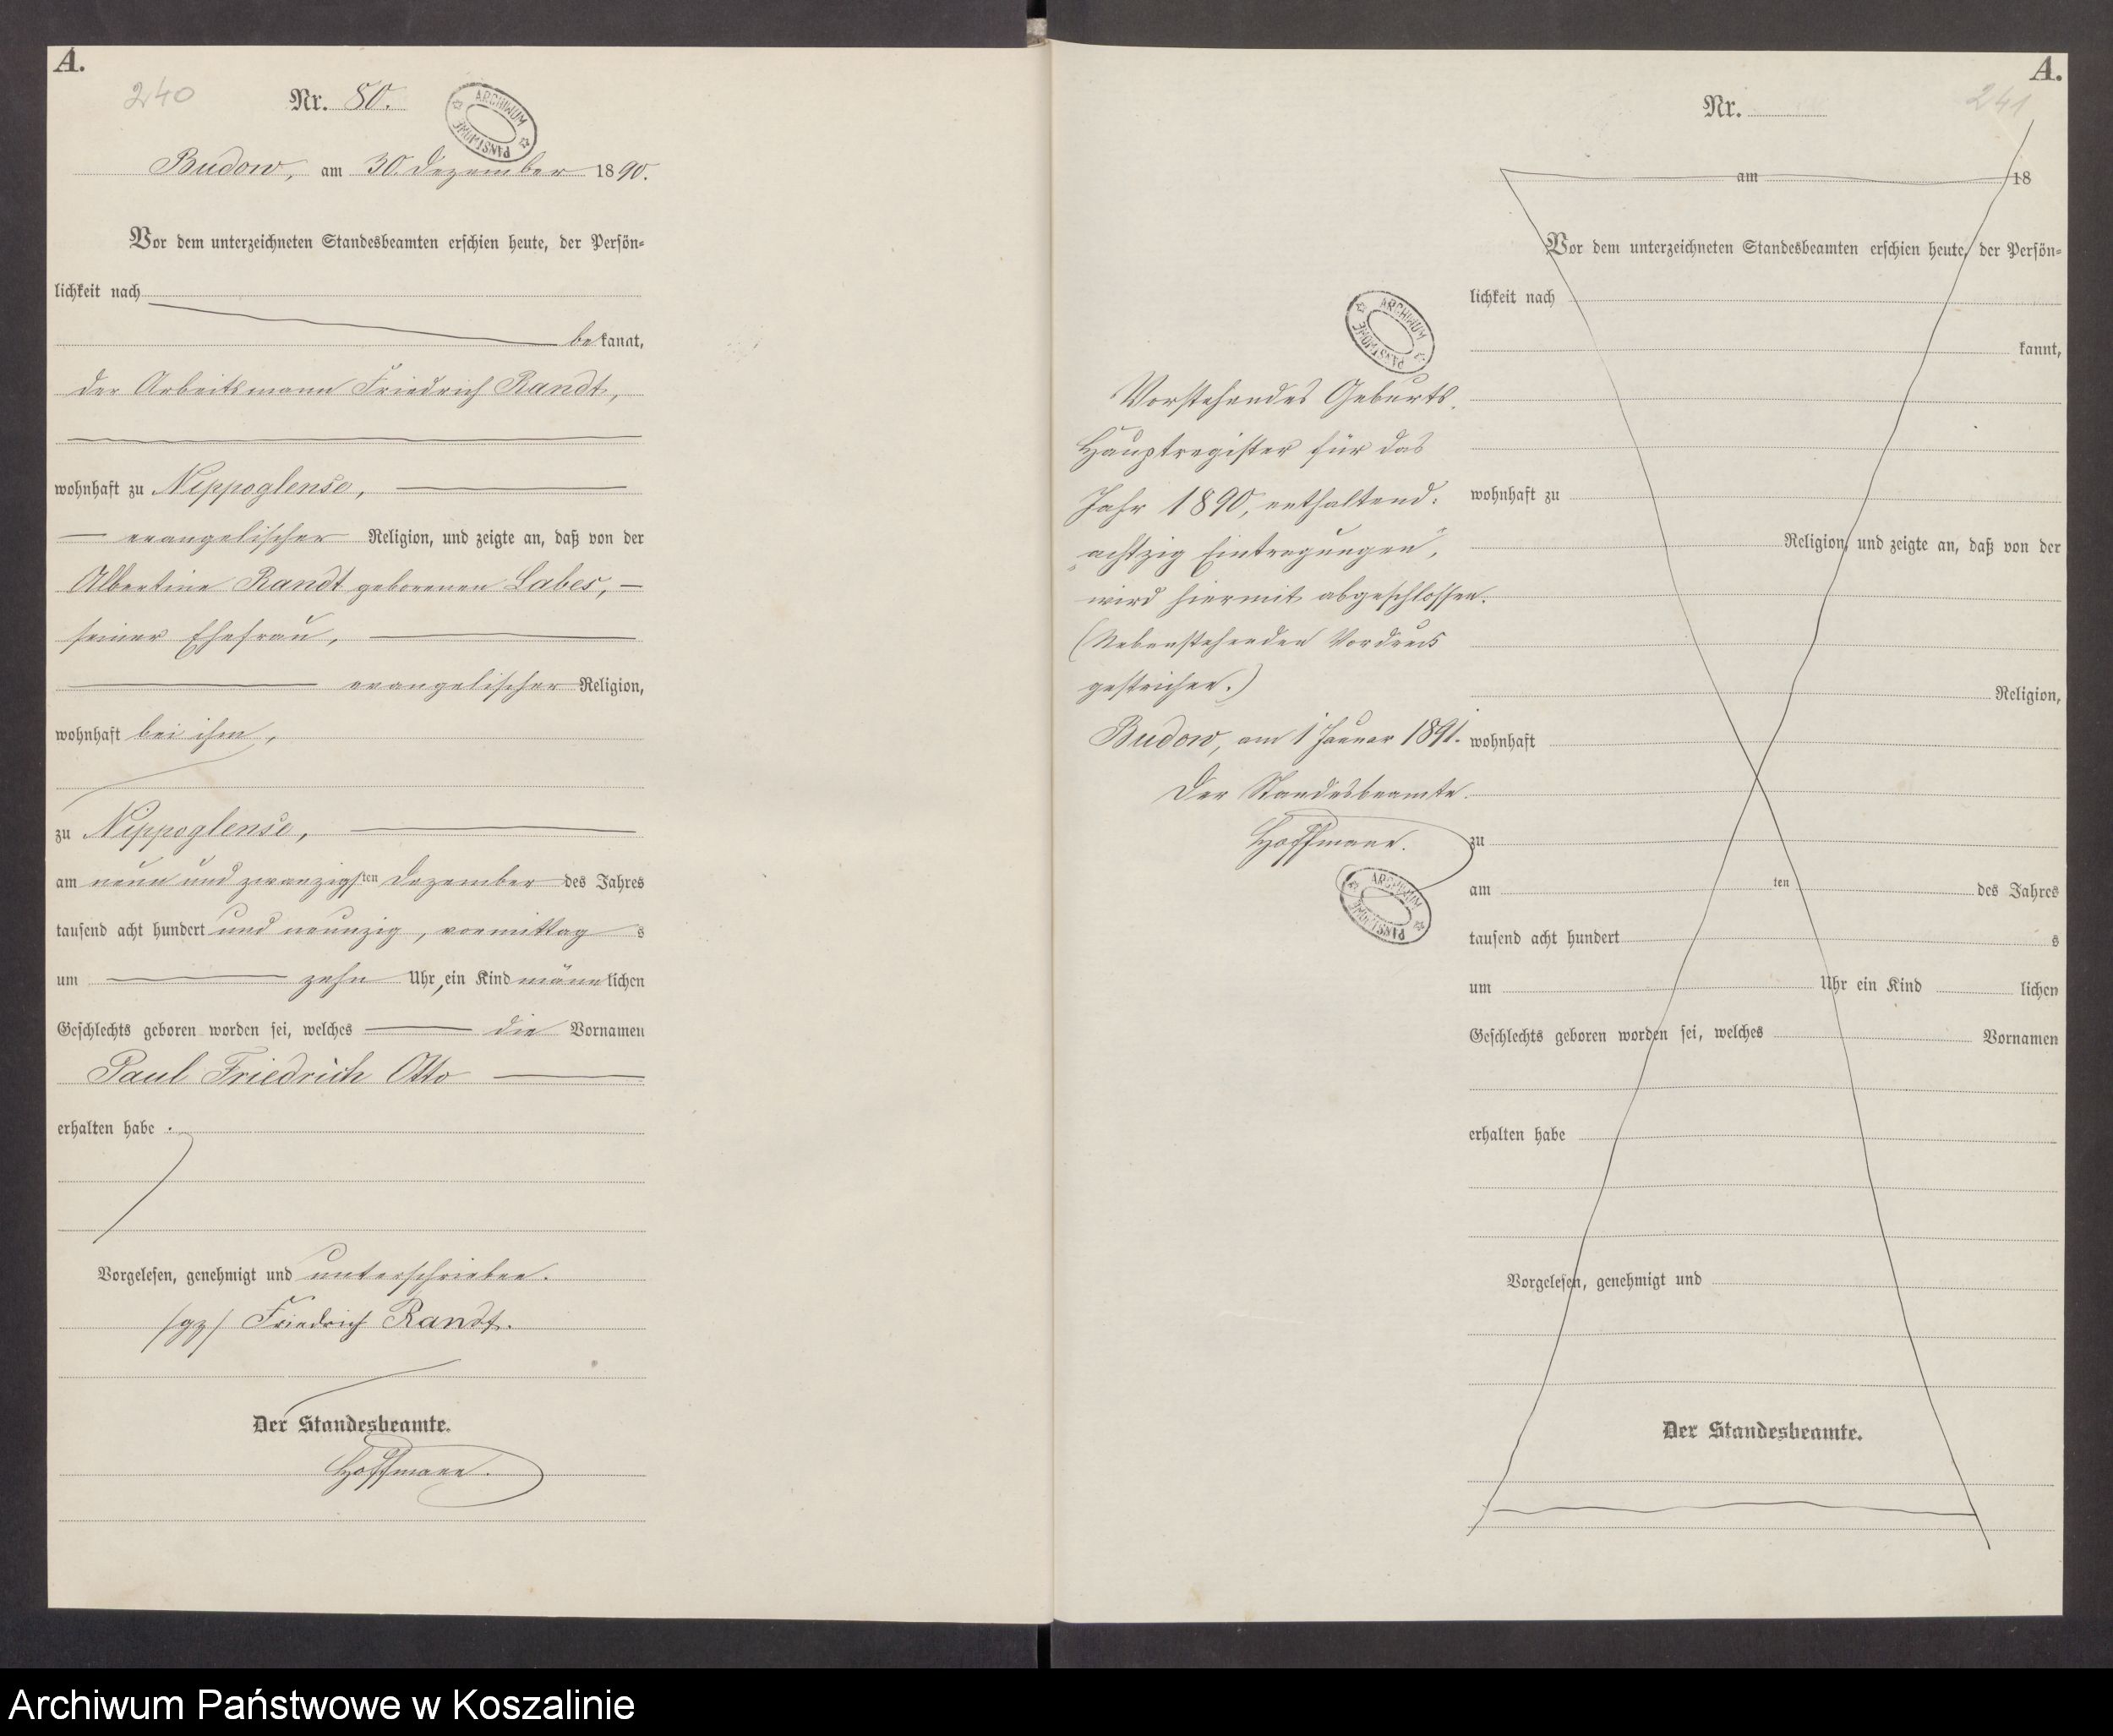 A.
240
Nr. 80.
ARCHIWUM PAŃSTWOWE
Budow, am 30. Dezember 1890.
Vor dem unterzeichneten Standesbeamten erschien heute, der Persön-
lichkeit nach
bekannt,
der Arbeitsmann Friedrich Randt,
wohnhaft zu Nippoglense,
evangelischer Religion, und zeigte an, daß von der
Albertine Randt geborenen Labes,
seiner Ehefrau,
evangelischer Religion,
wohnhaft bei ihm,
zu Nippoglense,
am neun und zwanzigsten Dezember des Jahres
tausend acht hundert und neunzig, vormittags
um zehn Uhr, ein Kind männlichen
Geschlechts geboren worden sei, welches die Vornamen
Paul Friedrich Otto
erhalten habe.
Vorgelesen, genehmigt und unterschrieben.
/gz/ Friedrich Randt.
Der Standesbeamte.
Hoffmann.
A.
241
Nr.
am 18
Vor dem unterzeichneten Standesbeamten erschien heute, der Persön-
lichkeit nach
kannt,
wohnhaft zu
Religion, und zeigte an, daß von der
Religion,
wohnhaft
zu
am ten des Jahres
tausend acht hundert s
um Uhr ein Kind lichen
Geschlechts geboren worden sei, welches Vornamen
erhalten habe
Vorgelesen, genehmigt und
Der Standesbeamte.
ARCHIWUM PAŃSTWOWE
Vorstehendes Geburts-
Hauptregister für das
Jahr 1890, enthaltend:
"achtzig Eintragungen",
wird hiermit abgeschlossen.
(Nebenstehenden Vordruck
gestrichen.)
Budow, am 1 Januar 1891.
Der Standesbeamte.
Hoffmann.
ARCHIWUM PAŃSTWOWE
Archiwum Państwowe w Koszalinie